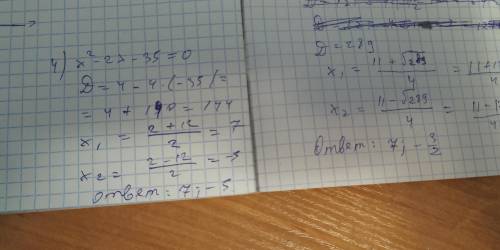 4) x² - 2x - 35 = 0
D = 4 - 4 · (-35) =
= 4 + 140 = 144
x₁ = (2 + 12)/2 = 7
x₂ = (2 - 12)/2 = -5
Ответ: 7; -5
D = 289
x₁ = (11 + √289)/4 = 11+1
x₂ = (11 - √289)/4 = 11 -
Ответ: 7; -3/2